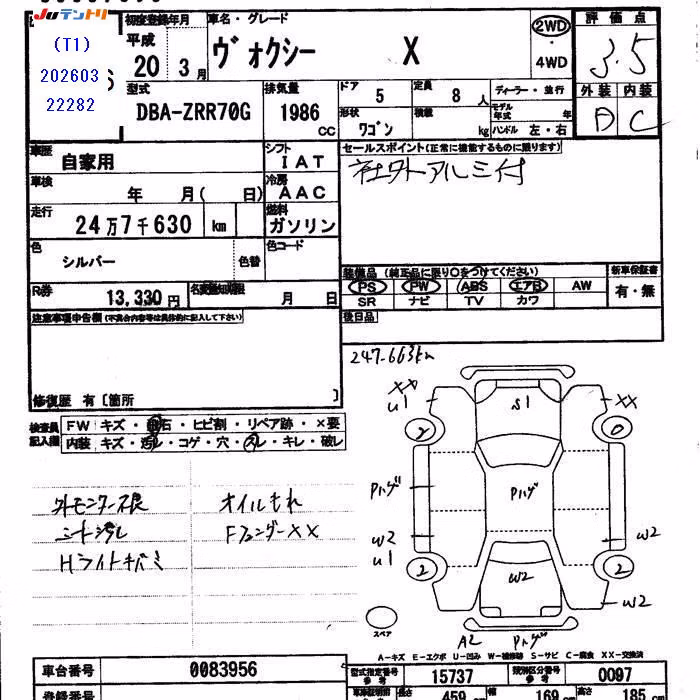 Juテントリ
(T1)
202603
22282
初度登録年月
平成
20 3月
車名・グレード
ヴォクシー X
2WD
4WD
評価点
3.5
外装 内装
D C
型式
DBA-ZRR70G
排気量
1986 cc
ドア 5
定員 8 人
形状 ワゴン
積載 kg
ディーラー・並行
モデル年式 年
ハンドル 左・右
車歴
自家用
シフト
IAT
セールスポイント(正常に機能するものに限ります)
社外アルミ付
車検
年 月( 日)
冷房
AAC
走行
24万7千630 km
燃料
ガソリン
色
シルバー
色替
色コード
装備品(純正品に限り○をつけてください)
PS PW ABS エアB AW
SR ナビ TV カワ
新車保証書
有・無
R券
13,330円
名変期限
月 日
後日品
注意事項申告欄(不具合内容等は具体的に記入して下さい)
247,663km
修復歴 有〔箇所 〕
検査員記入欄
FW キズ・飛石・ヒビ割・リペア跡・×要
内装 キズ・汚れ・コゲ・穴・スレ・キレ・破レ
オイルもれ
シート汚れ
FフェンダーXX
Hライトキバミ
XX
U1
S1
XX
Pハゲ
Pハゲ
W2
U1
W2
2
2
W2
W2
A2
Pハゲ
スペア
A-キズ E-エクボ U-凹み W-補修跡 S-サビ C-腐食 XX-交換済
車台番号
0083956
型式指定番号
参考
15737
類別区分番号
参考
0097
登録番号
長さ
459 cm
幅
169 cm
高さ
185 cm